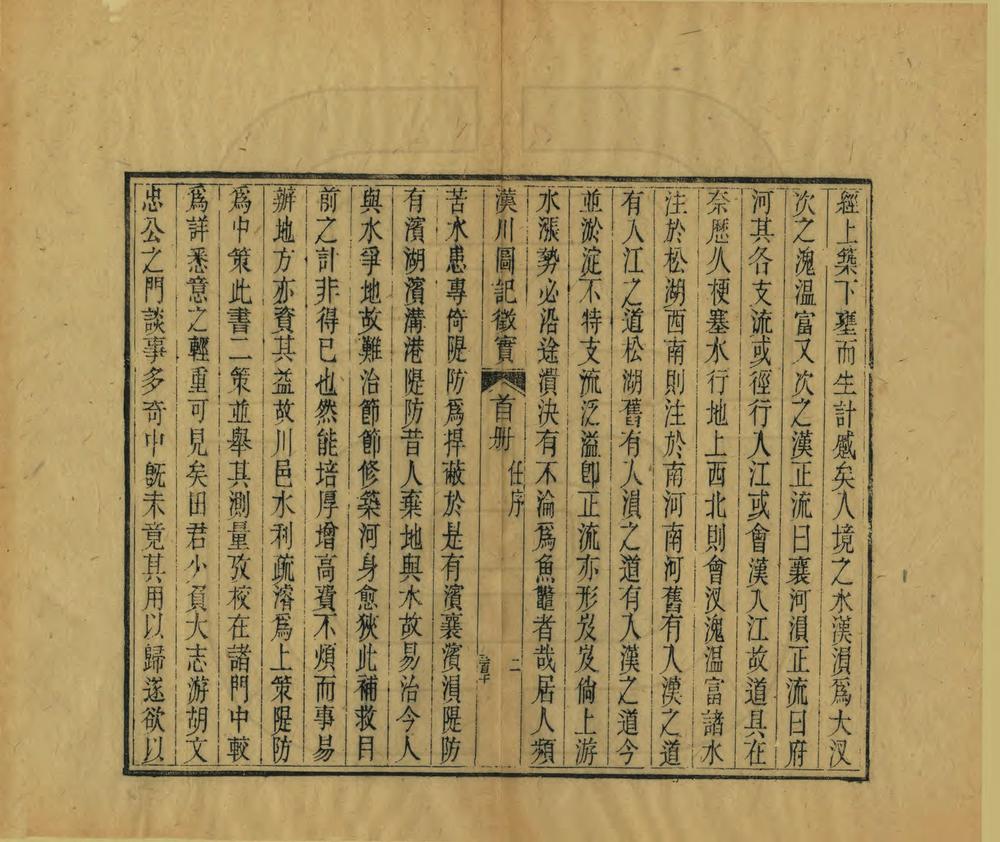 經上築下堊而生計蹙矣入境之水漢溳爲大汊
次之溾溫富又次之漢正流曰襄河溳正流曰府
河其各支流或徑行入江或會漢入江故道具在
奈歷久梗塞水行地上西北則會汊溾溫富諸水
注於松湖西南則注於南河南河舊有入漢之道
有入江之道松湖舊有入溳之道有入漢之道今
並淤淀不特支流泛溢卽正流亦形岌岌倘上游
水漲勢必沿途潰決有不淪爲魚鼈者哉居人頻
漢川圖記徵實 首册 任序 二
苦水患專倚隄防爲捍蔽於是有濱襄濱溳隄防
有濱湖濱溝港隄防昔人棄地與水故易治今人
與水爭地故難治節節修築河身愈狹此補救目
前之計非得已也然能培厚增高費不煩而事易
辦地方亦資其益故川邑水利疏濬爲上策隄防
爲中策此書二策並舉其測量攷校在諸門中較
爲詳悉意之輕重可見矣田君少負大志游胡文
忠公之門談事多奇中旣未竟其用以歸遂欲以